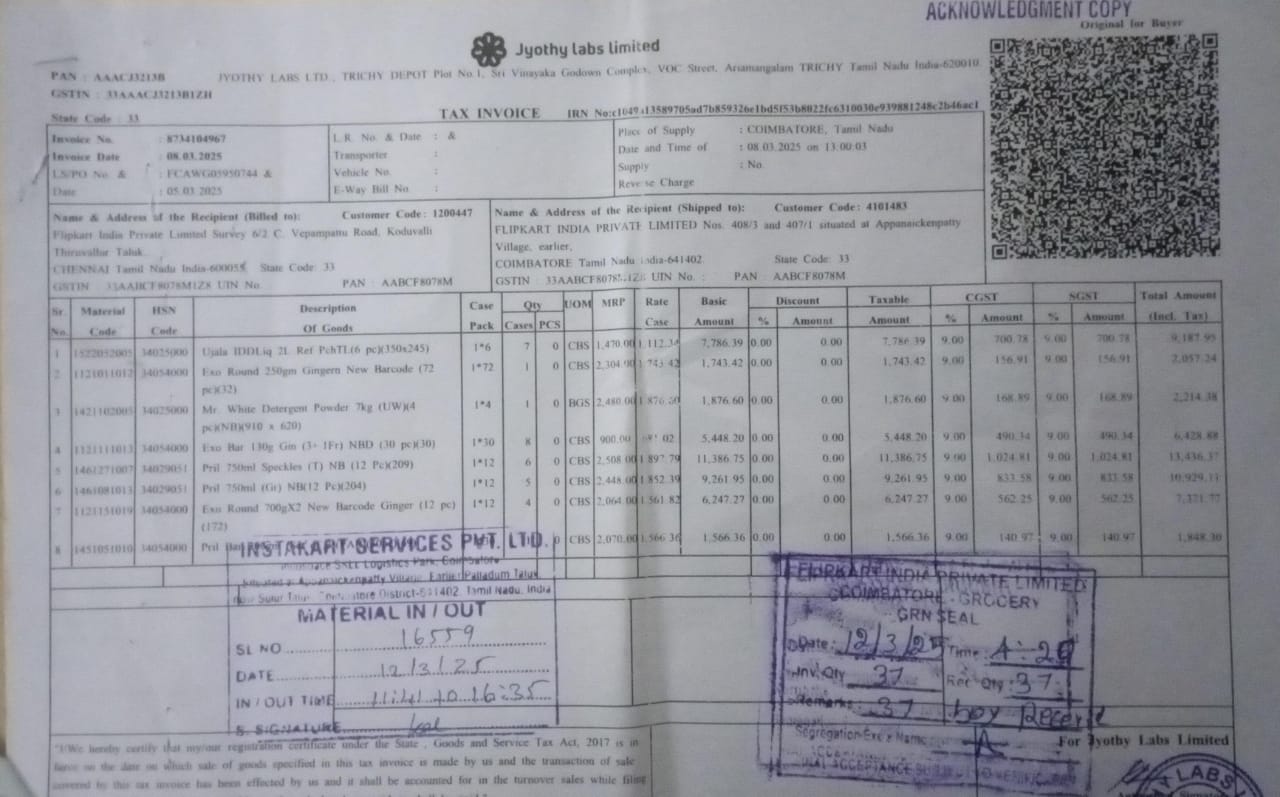 ACKNOWLEDGMENT COPY
Original for Buyer
Jyothy labs limited
PAN : AAACJ3213B JYOTHY LABS LTD., TRICHY DEPOT Plot No.1, Sri Vinayaka Godown Complex, VOC Street, Ariamangalam TRICHY Tamil Nadu India-620010.
GSTIN : 33AAACJ3213B1ZH
State Code : 33
TAX INVOICE IRN No:
Invoice No. : 8734104967
Invoice Date : 08.03.2025
LS/PO No. & : FCAWG05950744 &
Date : 05.03.2025
L.R. No. & Date : &
Transporter :
Vehicle No. :
E-Way Bill No. :
Place of Supply : COIMBATORE, Tamil Nadu
Date and Time of : 08.03.2025 on 13:00:03
Supply : No.
Reverse Charge
Name & Address of the Recipient (Billed to): Customer Code: 1200447
Flipkart India Private Limited Survey 6/2 C, Vepampattu Road, Koduvalli
Thiruvallur Taluk,
CHENNAI Tamil Nadu India-600055 State Code: 33
GSTIN : 33AABCF8078M1Z8 UIN No. PAN : AABCF8078M
Name & Address of the Recipient (Shipped to): Customer Code: 4101483
FLIPKART INDIA PRIVATE LIMITED Nos. 408/3 and 407/1 situated at Appanaickenpatty
Village, earlier,
COIMBATORE Tamil Nadu India-641402. State Code: 33
GSTIN : 33AABCF8078M1Z8 UIN No. : PAN : AABCF8078M
Sr. No. Material Code HSN Code Description Of Goods Case Pack Qty Cases PCS UOM MRP Rate Case Basic Amount Discount % Amount Taxable Amount CGST % Amount SGST % Amount Total Amount (Incl. Tax)
1 1522052005 34025000 Ujala IDDLiq 2L Ref PchTL(6 pc)(350x245) 1*6 7 0 CBS 1,470.00 1,112.34 7,786.39 0.00 0.00 7,786.39 9.00 700.78 9.00 700.78 9,187.95
2 1121011012 34054000 Exo Round 250gm Gingern New Barcode (72 1*72 1 0 CBS 2,304.00 1,743.42 1,743.42 0.00 0.00 1,743.42 9.00 156.91 9.00 156.91 2,057.24
pc)(32)
3 1421102005 34025000 Mr. White Detergent Powder 7kg (UW)(4 1*4 1 0 BGS 2,480.00 1,876.60 1,876.60 0.00 0.00 1,876.60 9.00 168.89 9.00 168.89 2,214.38
pc)(NB)(910 x 620)
4 1121111013 34054000 Exo Bar 130g Gin (3+ 1Fr) NBD (30 pc)(30) 1*30 8 0 CBS 900.00 02 5,448.20 0.00 0.00 5,448.20 9.00 490.34 9.00 490.34 6,428.88
5 1461271007 34029051 Pril 750ml Speckles (T) NB (12 Pc)(209) 1*12 6 0 CBS 2,508.00 1,897.79 11,386.75 0.00 0.00 11,386.75 9.00 1,024.81 9.00 1,024.81 13,436.37
6 1461081013 34029051 Pril 750ml (Gr) NB(12 Pc)(204) 1*12 5 0 CBS 2,448.00 1,852.39 9,261.95 0.00 0.00 9,261.95 9.00 833.58 9.00 833.58 10,929.11
7 1121151019 34054000 Exo Round 700gX2 New Barcode Ginger (12 pc) 1*12 4 0 CBS 2,064.00 1,561.82 6,247.27 0.00 0.00 6,247.27 9.00 562.25 9.00 562.25 7,371.77
(172)
8 1451051010 34054000 Pril 0 CBS 2,070.00 1,566.36 1,566.36 0.00 0.00 1,566.36 9.00 140.97 9.00 140.97 1,848.30
INSTAKART SERVICES PVT. LTD.
Logistics Park, Coimbatore
Appanaickenpatty Village, Earlier Palladum Taluk,
Sulur Taluk, Coimbatore District-641402, Tamil Nadu, India
MATERIAL IN / OUT
SL NO 16559
DATE 12/3/25
IN / OUT TIME 11:41 to 16:35
S. SIGNATURE
FLIPKART INDIA PRIVATE LIMITED
COIMBATORE - GROCERY
GRN SEAL
Date: 12/3/25 Time: 4:20
Inv. Qty 37 Rec Qty: 37
Remarks: 37 box
Segregation Exe. Name: A
For Jyothy Labs Limited
*I/We hereby certify that my/our registration certificate under the State , Goods and Service Tax Act, 2017 is in
force on the date on which sale of goods specified in this tax invoice is made by us and the transaction of sale
covered by this tax invoice has been effected by us and it shall be accounted for in the turnover sales while filing